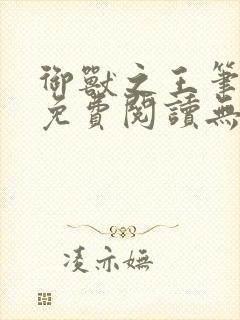 御獸之王筆
免費閱讀無
凌亦嫵